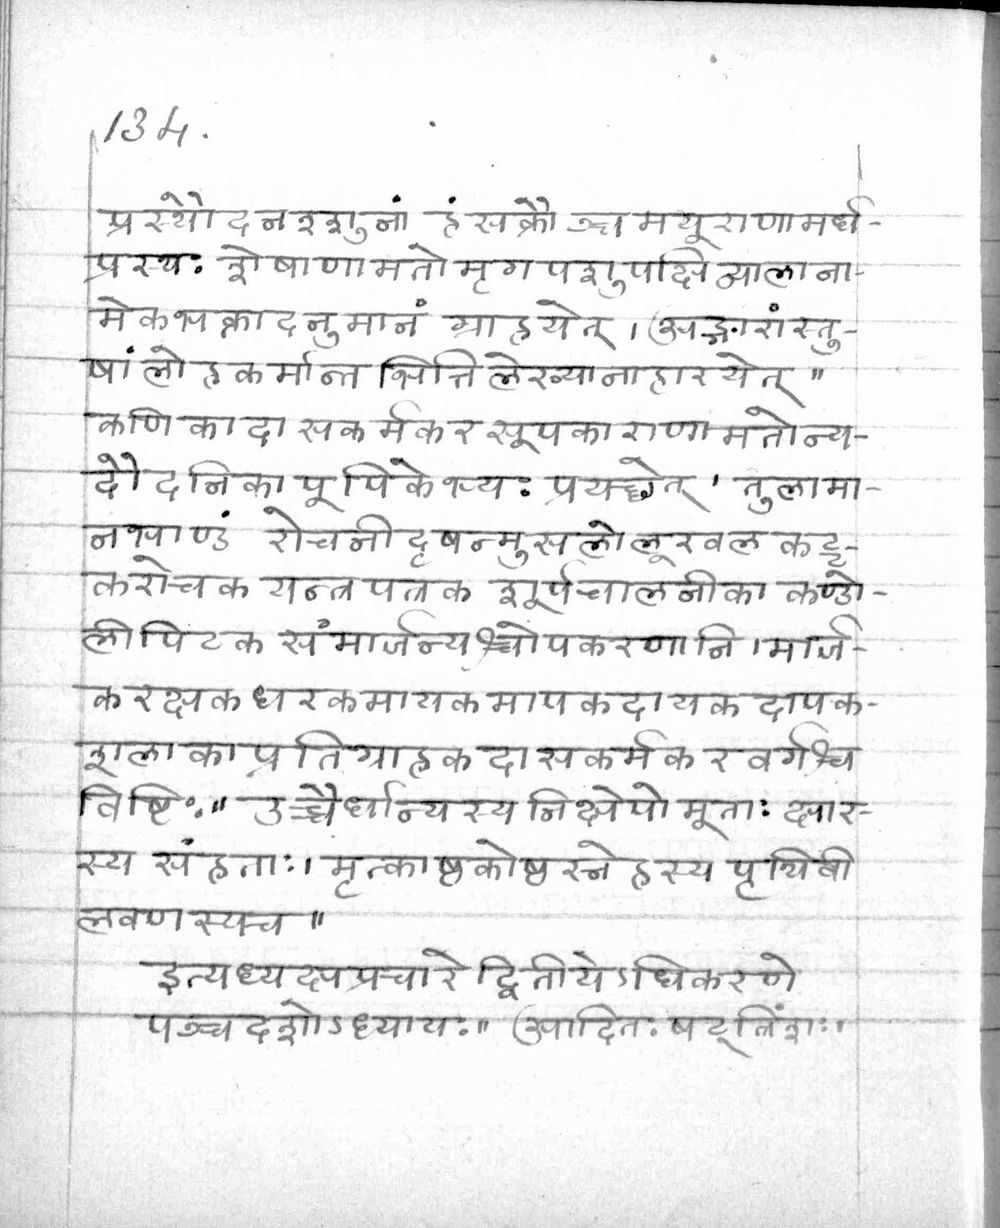 134.
प्रस्थौदनश्शुनां हंसक्रौञ्चमयूराणामर्ध-
प्रस्थः शेषाणामतो मृगपशुपक्षिव्यालाना-
मेकभक्तादनुमानं ग्राहयेत् । अङ्गारांस्तु-
षां लोहकर्मान्तभित्तिलेख्यानाहारयेत् ॥
कणिका दासकर्मकरसूपकाराणामतोन्य-
दौदनिकापूपिकेभ्यः प्रयच्छेत् । तुलामा-
नभाण्डं रोचनीदृषन्मुसलोलूखलकट्ट-
करोचकयन्त्रपत्रक शूर्पचालनीका कण्डो-
लीपिटकसंमार्जन्यश्चोपकरणानि । मार्ज-
करक्षकधरकमायकमापकदायकदापक-
शलाकाप्रतिग्राहकदासकर्मकरवर्गश्च
विष्टिः ॥ उच्चैर्धान्यस्य निक्षेपो मूताः क्षार-
स्य संहताः । मृत्काष्ठकोष्ठस्नेहस्य पृथिवी
लवणस्यच ॥
इत्यध्यक्षप्रचारे द्वितीयेऽधिकरणे
पञ्चदशोऽध्यायः ॥ आदितः षट्त्रिंशः ।